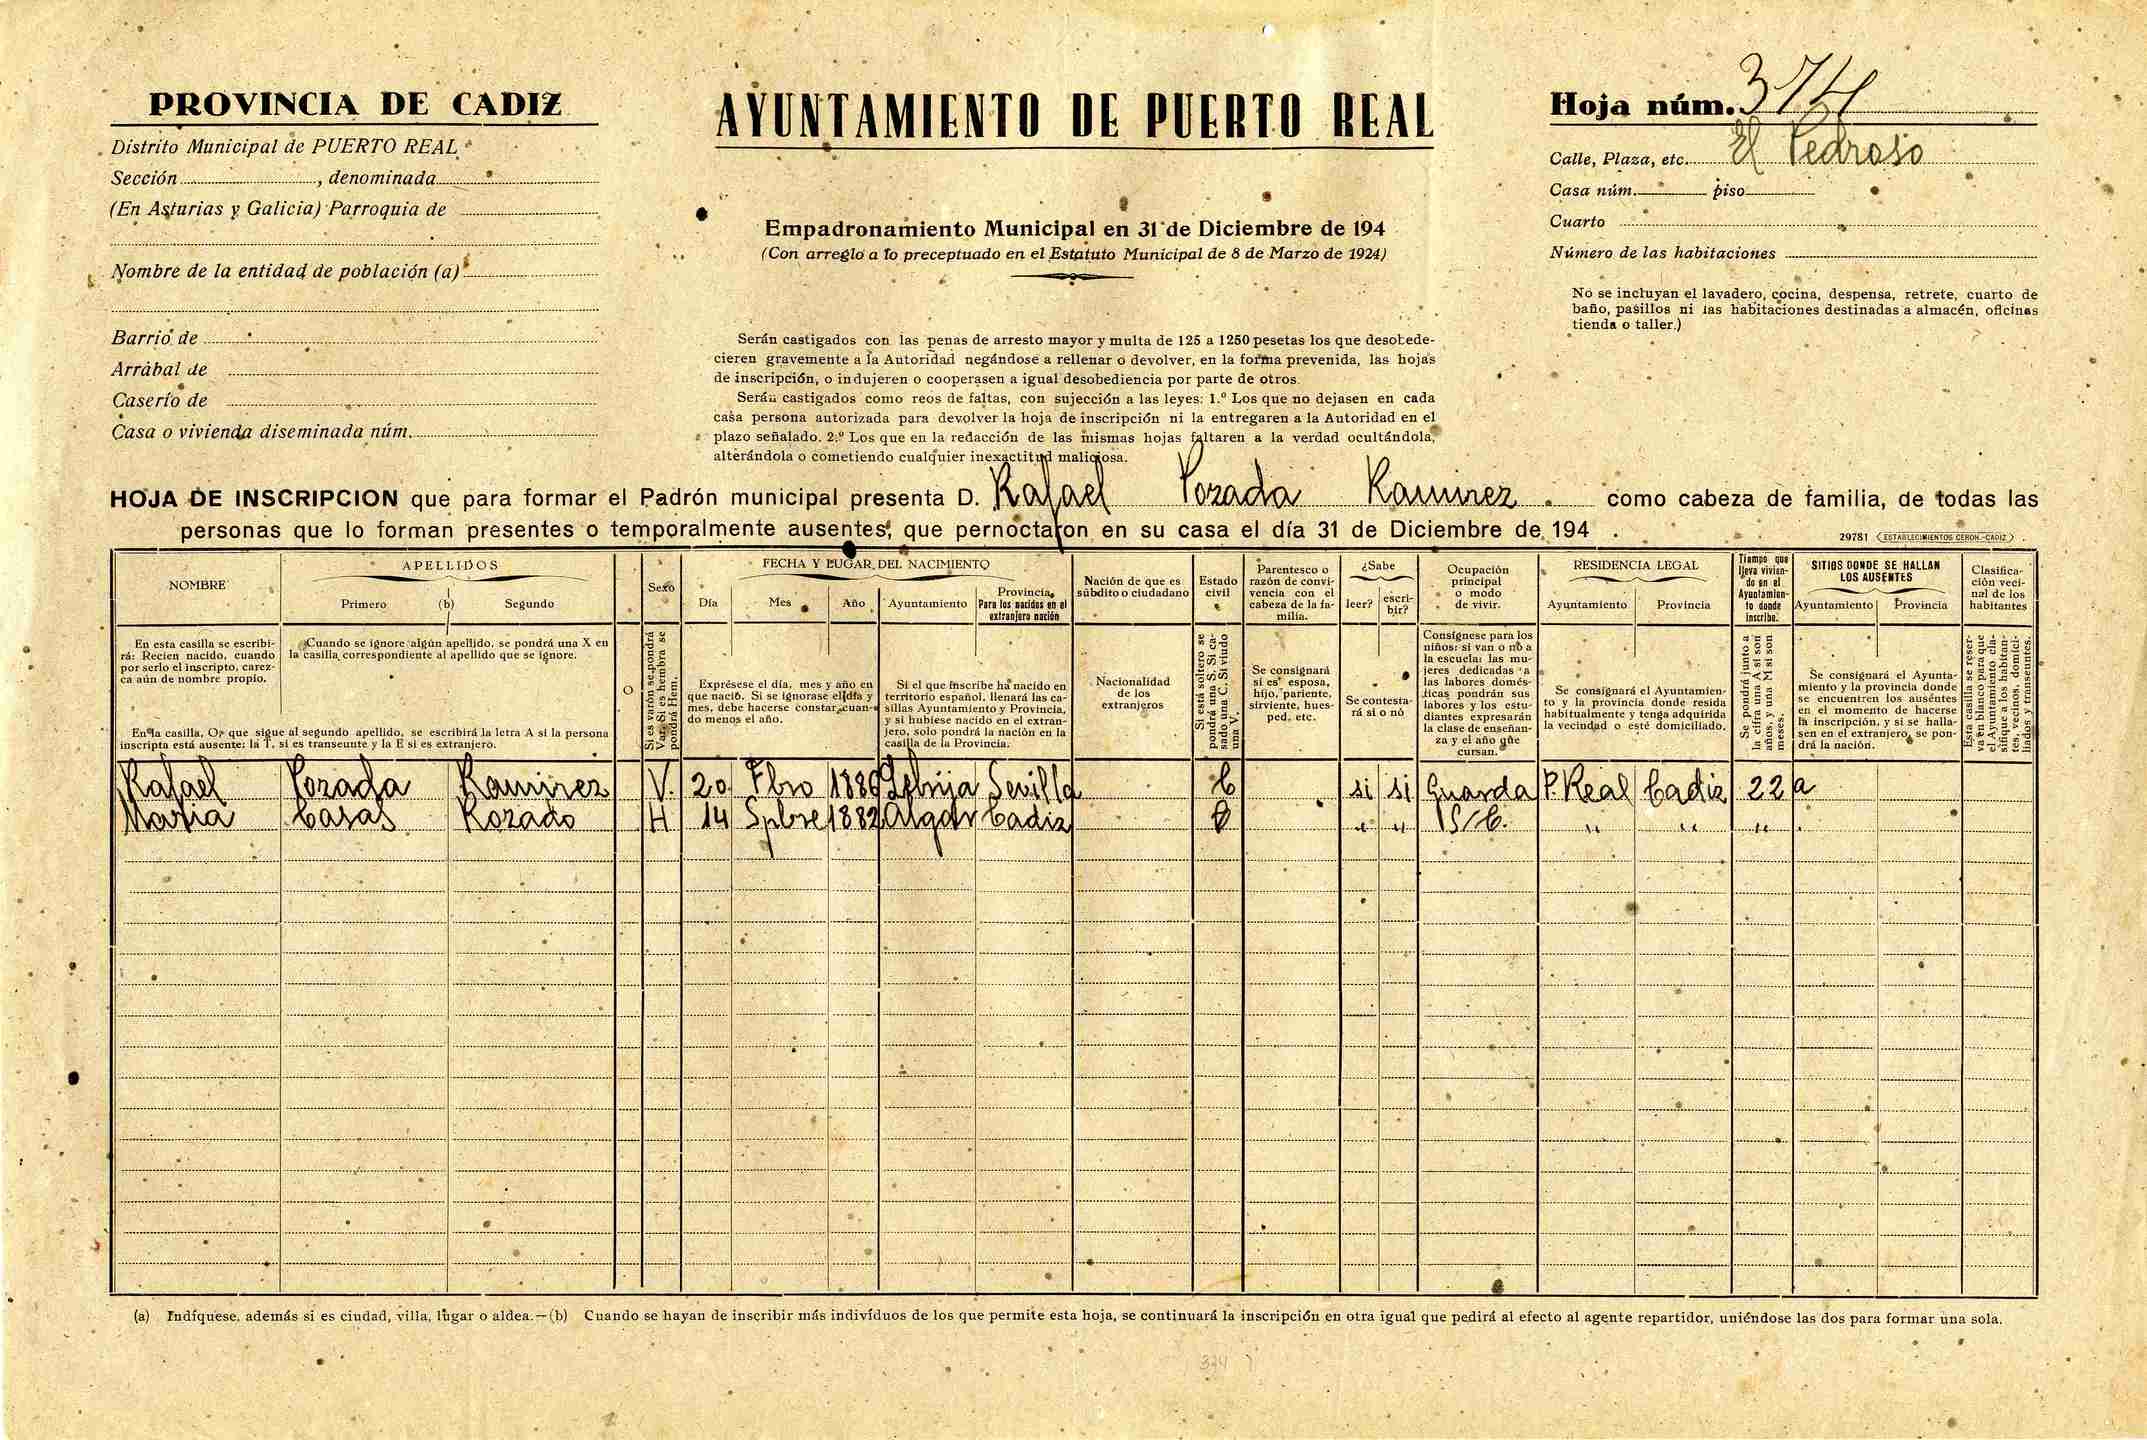 PROVINCIA DE CADIZ
Distrito Municipal de PUERTO REAL
Sección , denominada
(En Asturias y Galicia) Parroquia de
Nombre de la entidad de población (a)
Barrio de
Arrabal de
Caserío de
Casa o vivienda diseminada núm.
AYUNTAMIENTO DE PUERTO REAL
Empadronamiento Municipal en 31 de Diciembre de 194
(Con arreglo a lo preceptuado en el Estatuto Municipal de 8 de Marzo de 1924)
Serán castigados con las penas de arresto mayor y multa de 125 a 1250 pesetas los que desobede-
cieren gravemente a la Autoridad negándose a rellenar o devolver, en la forma prevenida, las hojas
de inscripción, o indujeren o cooperasen a igual desobediencia por parte de otros.
Serán castigados como reos de faltas, con sujección a las leyes: 1.º Los que no dejasen en cada
casa persona autorizada para devolver la hoja de inscripción ni la entregaren a la Autoridad en el
plazo señalado. 2.º Los que en la redacción de las mismas hojas faltaren a la verdad ocultándola,
alterándola o cometiendo cualquier inexactitud maliciosa.
Hoja núm. 374
Calle, Plaza, etc. El Pedroso
Casa núm. piso
Cuarto
Número de las habitaciones
No se incluyan el lavadero, cocina, despensa, retrete, cuarto de
baño, pasillos ni las habitaciones destinadas a almacén, oficinas
tienda o taller.)
HOJA DE INSCRIPCION que para formar el Padrón municipal presenta D. Rafael Pozada Ramirez como cabeza de familia, de todas las
personas que lo forman presentes o temporalmente ausentes, que pernoctaron en su casa el día 31 de Diciembre de 194 .
29781 ESTABLECIMIENTOS CERON.-CADIZ
NOMBRE
APELLIDOS
Primero (b) Segundo
Sexo
FECHA Y LUGAR DEL NACIMIENTO
Día Mes Año Ayuntamiento
Provincia
Para los nacidos en el
extranjero nación
Nación de que es
súbdito o ciudadano
Estado
civil
Parentesco o
razón de convi-
vencia con el
cabeza de la fa-
milia.
¿Sabe
leer? escri-
bir?
Ocupación
principal
o modo
de vivir.
RESIDENCIA LEGAL
Ayuntamiento Provincia
Tiempo que
lleva vivien-
do en el
Ayuntamien-
to donde
inscribe.
SITIOS DONDE SE HALLAN
LOS AUSENTES
Ayuntamiento Provincia
Clasifica-
ción veci-
nal de los
habitantes
En esta casilla se escribi-
rá: Recien nacido, cuando
por serlo el inscripto, carez-
ca aún de nombre propio.
Cuando se ignore algún apellido, se pondrá una X en
la casilla correspondiente al apellido que se ignore.
En la casilla, O, que sigue al segundo apellido, se escribirá la letra A si la persona
inscripta está ausente: la T, si es transeunte y la E si es extranjero.
O
Si es varón se pondrá
Var. Si es hembra se
pondrá Hem.
Exprésese el día, mes y año en
que nació. Si se ignorase el día y
mes, debe hacerse constar, cuan-
do menos el año.
Si el que inscribe ha nacido en
territorio español, llenará las ca-
sillas Ayuntamiento y Provincia,
y si hubiese nacido en el extran-
jero, solo pondrá la nación en la
casilla de la Provincia.
Nacionalidad
de los
extranjeros
Si está soltero se
pondrá una S. Si ca-
sado una C. Si viudo
una V.
Se consignará
si es esposa,
hijo, pariente,
sirviente, hues-
ped, etc.
Se contesta-
rá si o nó
Consígnese para los
niños: si van o nó a
la escuela: las mu-
jeres dedicadas a
las labores domés-
ticas pondrán sus
labores y los estu-
diantes expresarán
la clase de enseñan-
za y el año que
cursan.
Se consignará el Ayuntamien-
to y la provincia donde resida
habitualmente y tenga adquirida
la vecindad o esté domiciliado.
Se pondrá junto a
la cifra una A si son
años, y una M si son
meses.
Se consignará el Ayunta-
miento y la provincia donde
se encuentren los ausentes
en el momento de hacerse
la inscripción, y si se halla-
sen en el extranjero, se pon-
drá la nación.
Esta casilla se reser-
va en blanco para que
el Ayuntamiento cla-
sifique a los habitan-
tes, vecinos, domici-
liados y transeuntes.
Rafael Pozada Ramirez V. 20 Fbro 1886 Lebrija Sevilla C si si Guarda P. Real Cadiz 22 a
Maria Casas Rozado H 14 Spbre 1882 Algdr Cadiz C " " S/C. " " "
(a) Indíquese, además si es ciudad, villa, lugar o aldea.—(b) Cuando se hayan de inscribir más individuos de los que permite esta hoja, se continuará la inscripción en otra igual que pedirá al efecto al agente repartidor, uniéndose las dos para formar una sola.
374